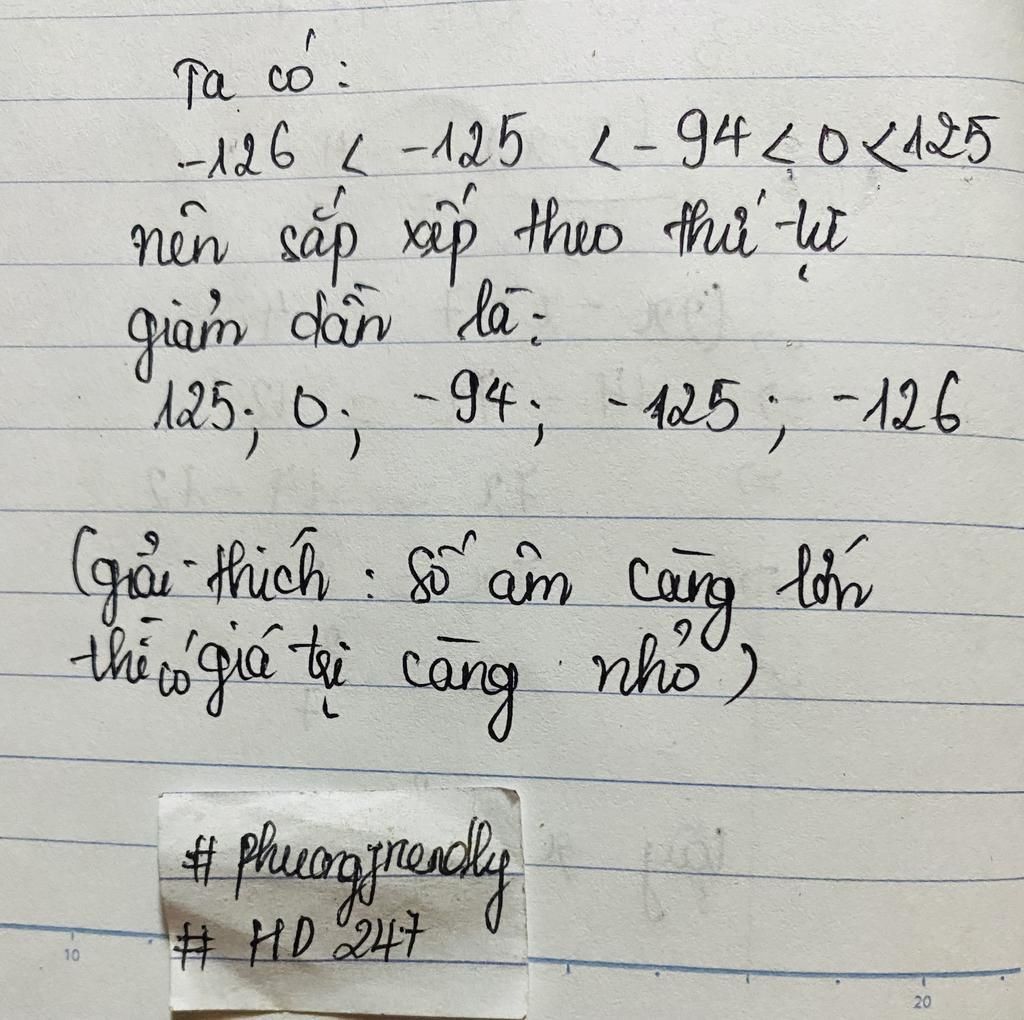 Ta có:
-126 < -125 < -94 < 0 < 125
nên sắp xếp theo thứ tự
giảm dần là:
125; 0; -94; -125; -126
(giải thích: Số âm càng lớn
thì có giá trị càng nhỏ)
# phuongfriendly
# HD 247
10
20